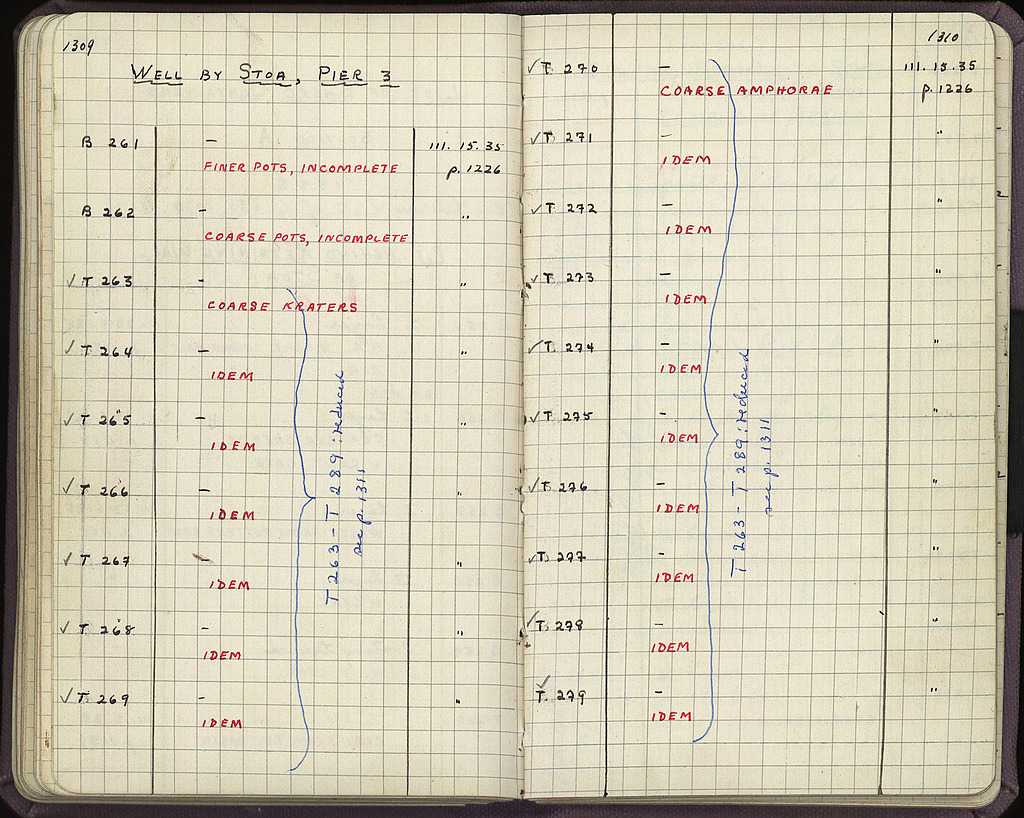 1309
WELL BY STOA, PIER 3
B 261 – 111. 15. 35
FINER POTS, INCOMPLETE p. 1226
B 262 – "
COARSE POTS, INCOMPLETE
✓ T 263 – "
COARSE KRATERS
✓ T 264 – "
IDEM
✓ T 265 – "
IDEM
✓ T 266 – "
IDEM
✓ T 267 – "
IDEM
✓ T 268 – "
IDEM
✓ T 269 – "
IDEM
T 263 – T 289 : reduced
see p. 1311
1310
✓ T 270 – 111. 15. 35
COARSE AMPHORAE p. 1226
✓ T 271 – "
IDEM
✓ T 272 – "
IDEM
✓ T 273 – "
IDEM
✓ T 274 – "
IDEM
✓ T 275 – "
IDEM
✓ T 276 – "
IDEM
✓ T 277 – "
IDEM
✓ T 278 – "
IDEM
✓ T 279 – "
IDEM
T 263 – T 289 : reduced
see p. 1311